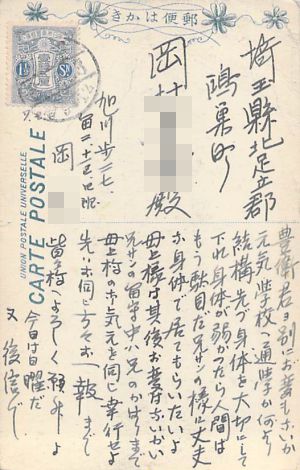 きかは便郵
埼玉縣北足立郡
鴻巣町
岡村
殿
加川歩二七、
岡
CARTE POSTALE
UNION POSTALE UNIVERSELLE
1½ Sn
豊衛君ヨ別にお変もないか
元気で学校へ通学か何より
結構だ身体を大切にして
下れ身体が弱かたら人間は
もう駄目だ兄サンの様に丈夫
な身体で居てもらいたいよ
母上様は其後お変はないかい
兄サンの留守中ハ兄のかはりまで
母上様のお気元を伺い幸行せよ
先ハお伺し方々お一報まで
皆様によろしく願外よ
今日日曜だ
又後信で